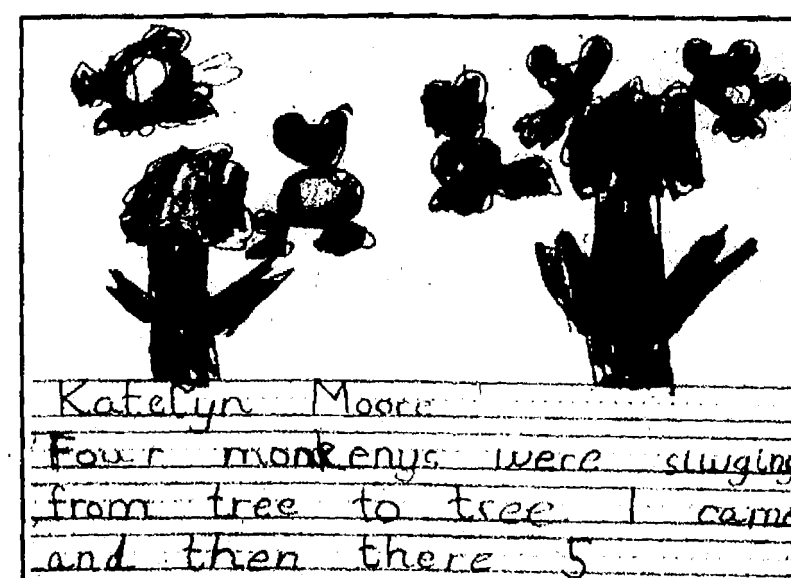 Katelyn Moore
Four monkenys were swuging
from tree to tree 1 came
and then there 5